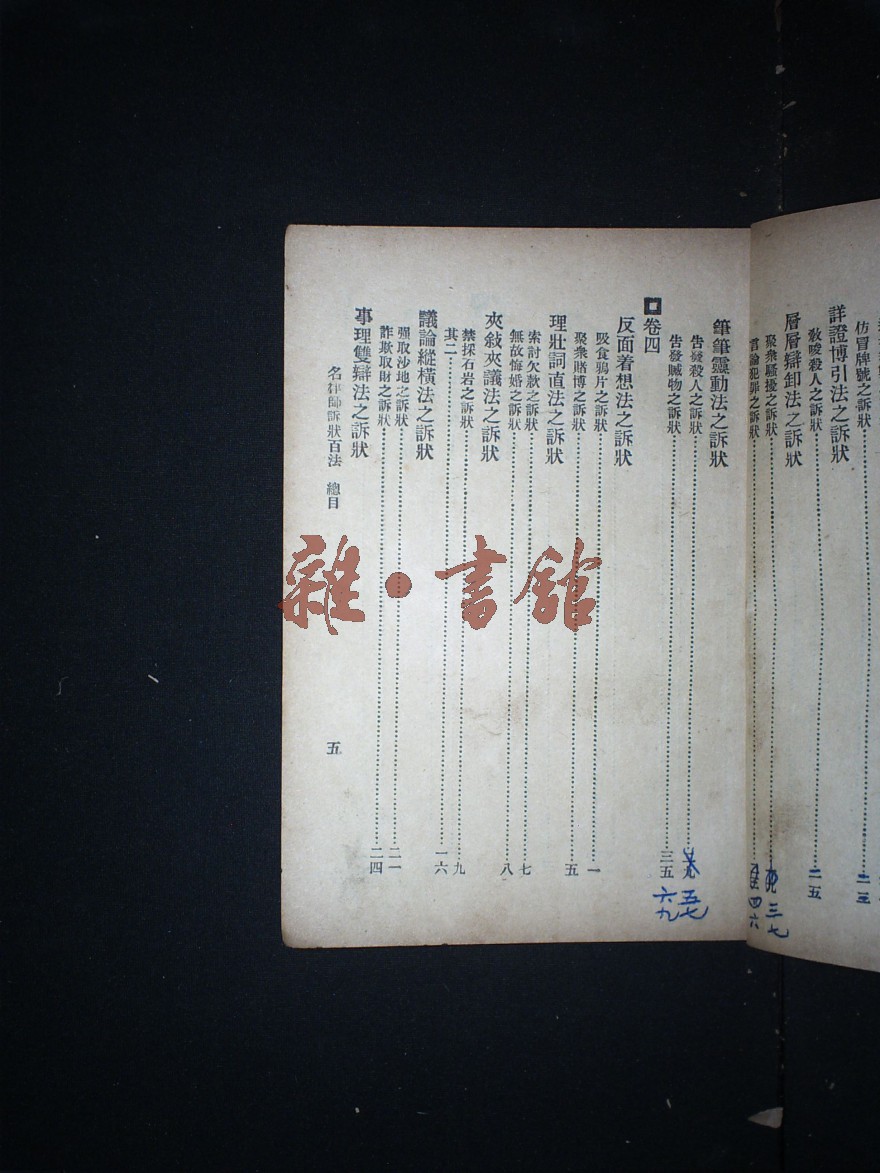 詳證博引法之訴狀
教唆殺人之訴狀 二五
層層辯卸法之訴狀
聚衆騷擾之訴狀 三七
言論犯罪之訴狀 四六
筆筆靈動法之訴狀
告發殺人之訴狀 五七
告發贓物之訴狀 三五 六九
卷四
反面着想法之訴狀
吸食鴉片之訴狀 一
聚衆賭博之訴狀 五
理壯詞直法之訴狀
索討欠款之訴狀 七
無故悔婚之訴狀 八
夾敍夾議法之訴狀
禁採石岩之訴狀 九
其二 一六
議論縱橫法之訴狀
強取沙地之訴狀 二一
詐欺取財之訴狀 二四
事理雙辯法之訴狀
名律師訴狀百法 總目 五
雜·書館